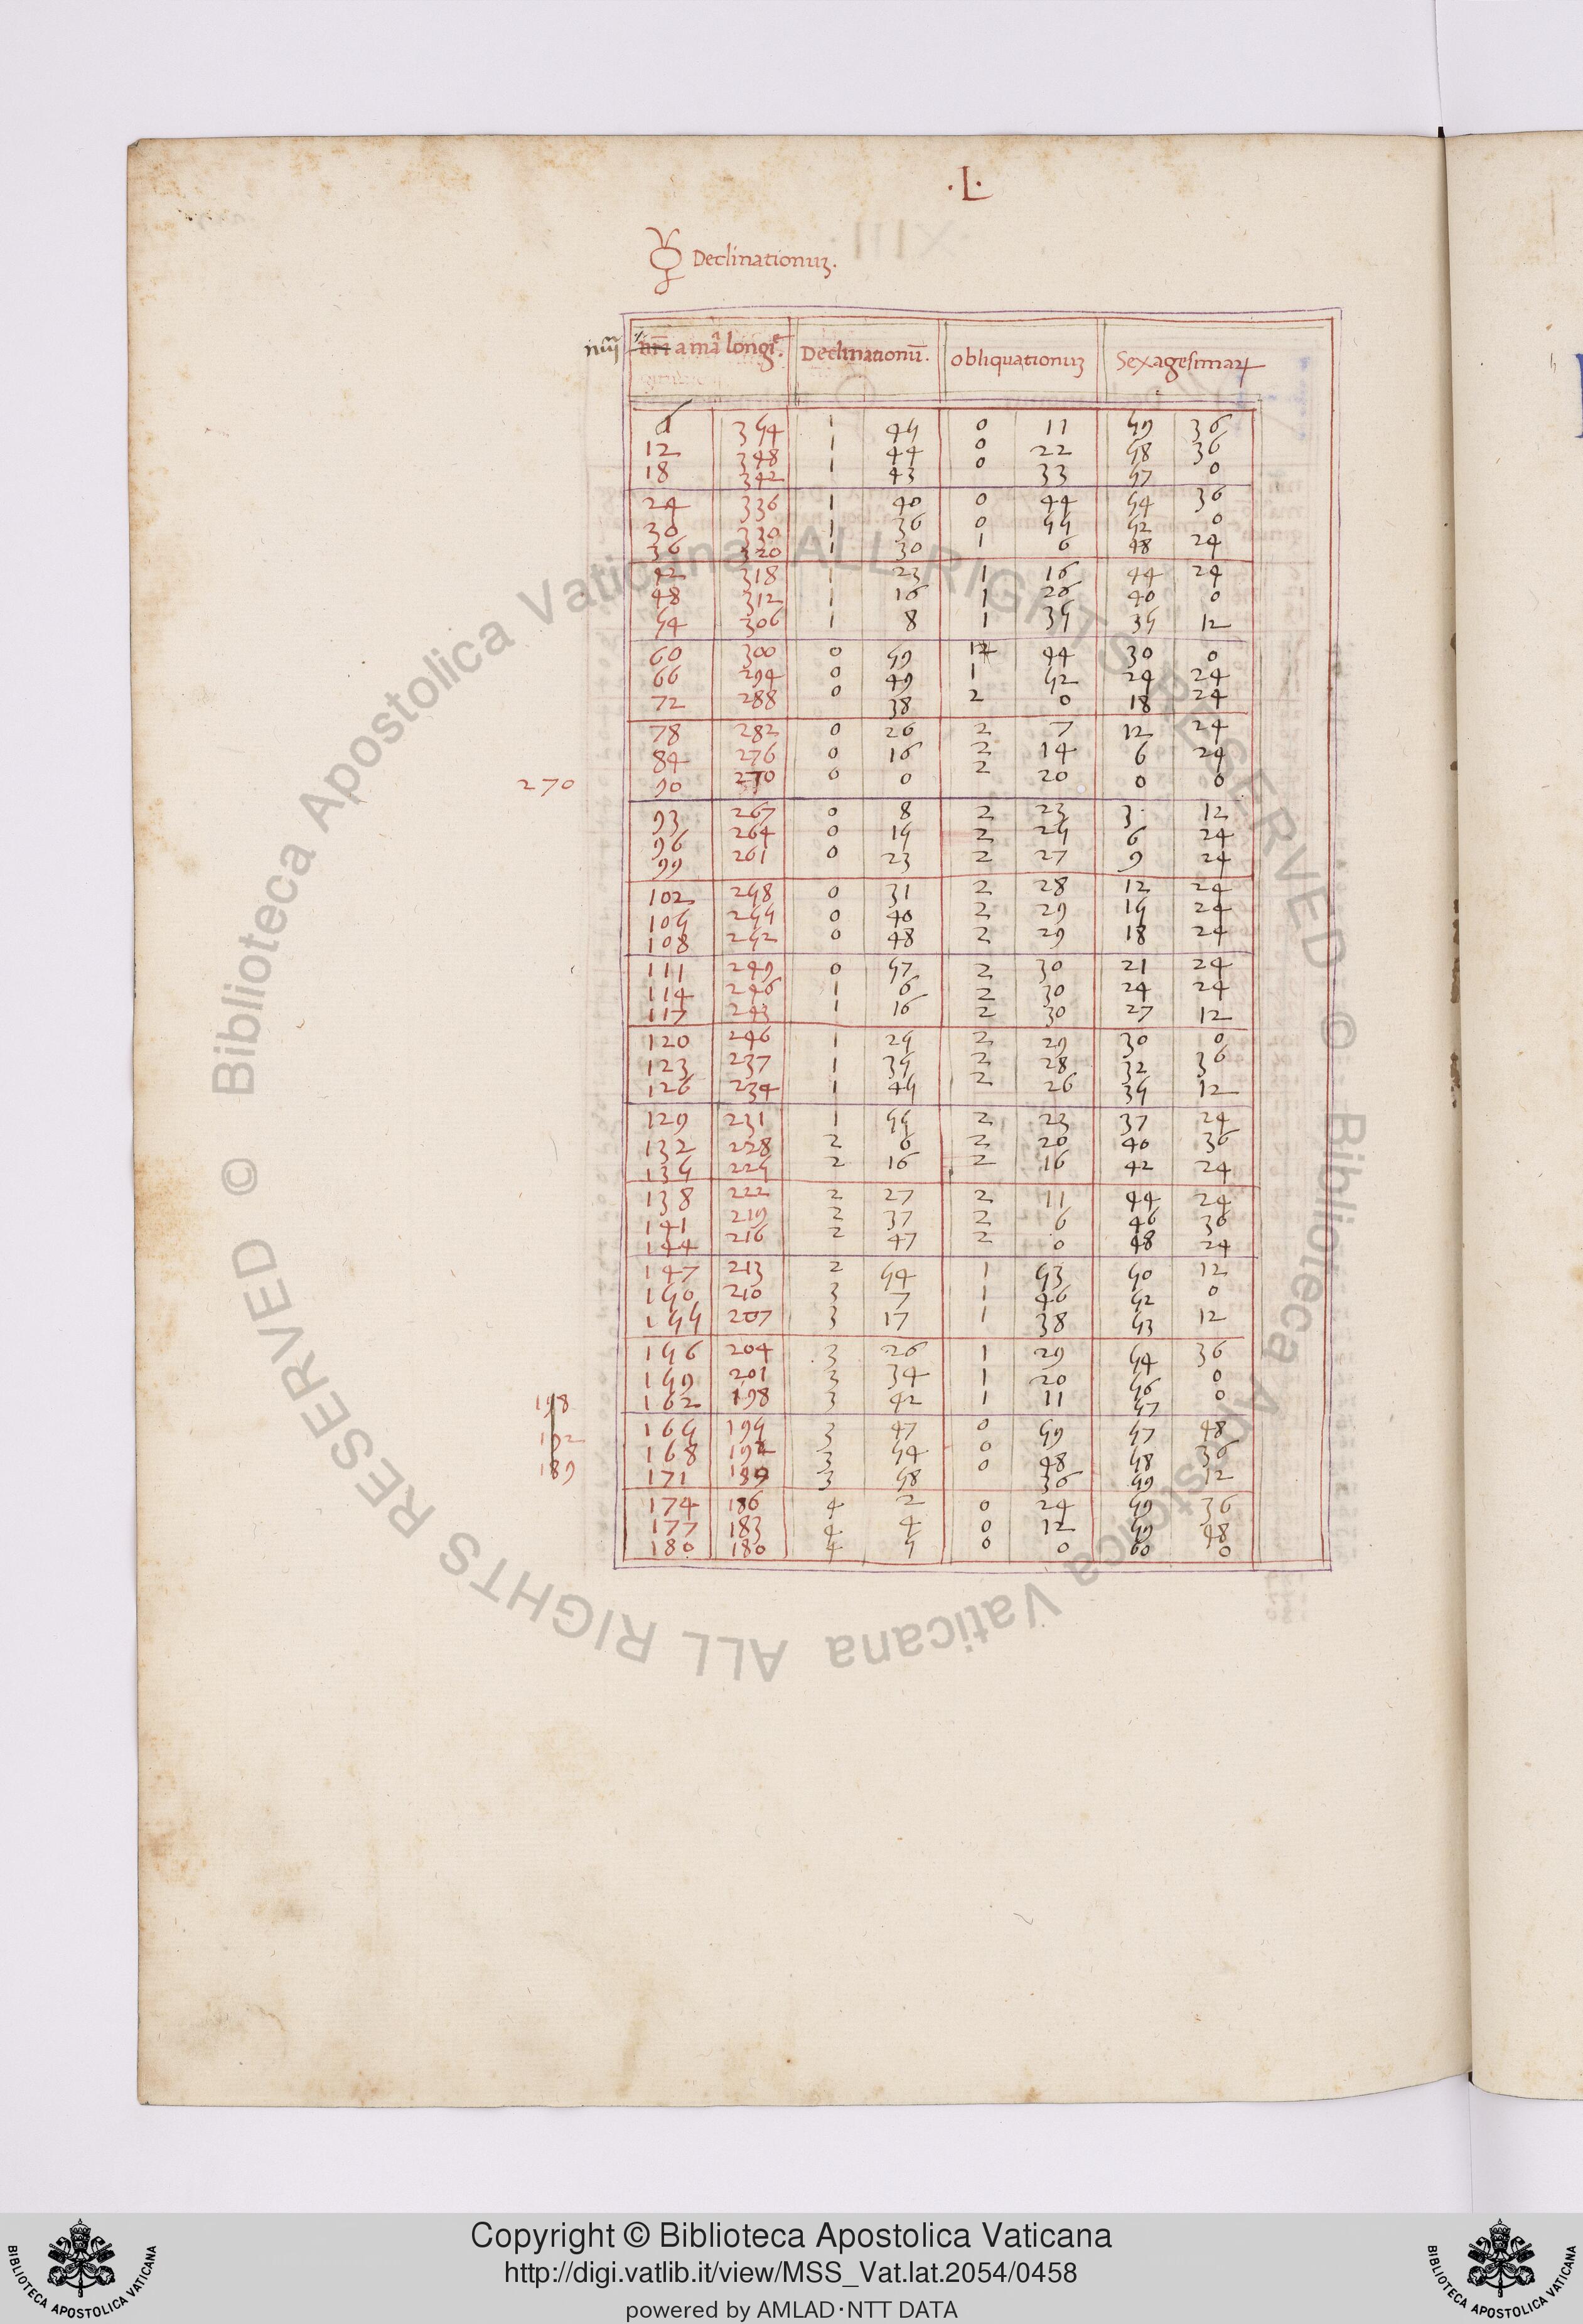 ·L·
☿ Declinationuʒ.
nūi a mā longi. Declinationū. obliquationuʒ Sexagesimaꝝ
6 354 1 45 0 11 59 36
12 348 1 44 0 22 58 36
18 342 1 43 0 33 57 0
24 336 1 40 0 44 54 36
30 330 1 36 0 55 52 0
36 320 1 30 1 6 48 24
42 318 1 23 1 16 44 24
48 312 1 16 1 26 40 0
54 306 1 8 1 35 35 12
60 300 0 59 1 44 30 0
66 294 0 49 1 52 24 24
72 288 0 38 2 0 18 24
78 282 0 26 2 7 12 24
84 276 0 16 2 14 6 24
270 90 270 0 0 2 20 0 0
93 267 0 8 2 23 3 12
96 264 0 15 2 25 6 24
99 261 0 23 2 27 9 24
102 258 0 31 2 28 12 24
105 255 0 40 2 29 15 24
108 252 0 48 2 29 18 24
111 249 0 57 2 30 21 24
114 246 1 6 2 30 24 24
117 243 1 16 2 30 27 12
120 246 1 25 2 29 30 0
123 237 1 35 2 28 32 36
126 234 1 45 2 26 35 12
129 231 1 55 2 23 37 24
132 228 2 6 2 20 40 36
135 225 2 16 2 16 42 24
138 222 2 27 2 11 44 24
141 219 2 37 2 6 46 36
144 216 2 47 2 0 48 24
147 213 2 54 1 53 50 12
150 210 3 7 1 46 52 0
155 207 3 17 1 38 53 12
156 204 3 26 1 29 54 36
159 201 3 34 1 20 56 0
198 162 198 3 42 1 11 57 0
165 195 3 47 0 59 57 48
192 168 192 3 54 0 48 58 36
189 171 189 3 58 0 36 59 12
174 186 4 2 0 24 59 36
177 183 4 4 0 12 59 48
180 180 4 5 0 0 60 0
© Biblioteca Apostolica Vaticana ALL RIGHTS RESERVED © Biblioteca Apostolica Vaticana ALL RIGHTS RESERVED
Copyright © Biblioteca Apostolica Vaticana
http://digi.vatlib.it/view/MSS_Vat.lat.2054/0458
powered by AMLAD·NTT DATA
BIBLIOTECA APOSTOLICA VATICANA
BIBLIOTECA APOSTOLICA VATICANA